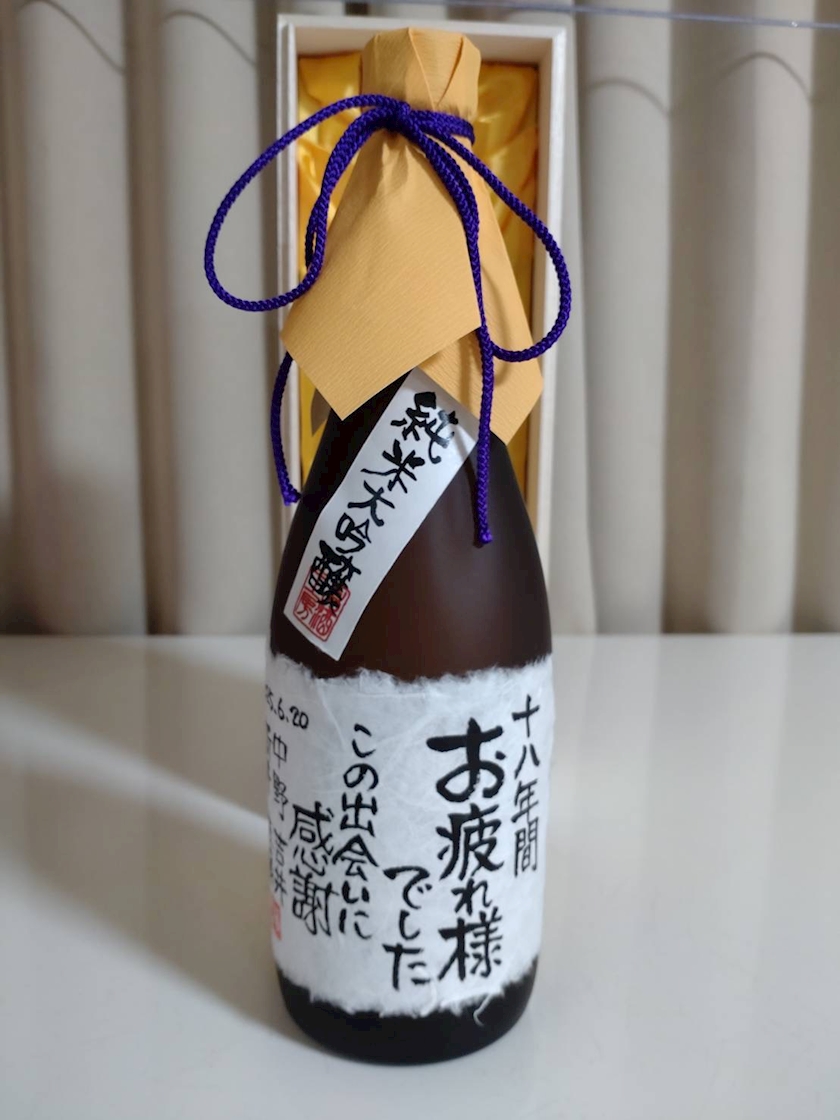 純米大吟醸
十八年間
お疲れ様
でした
この出会いに
感謝
5.6.20
中野 吉井